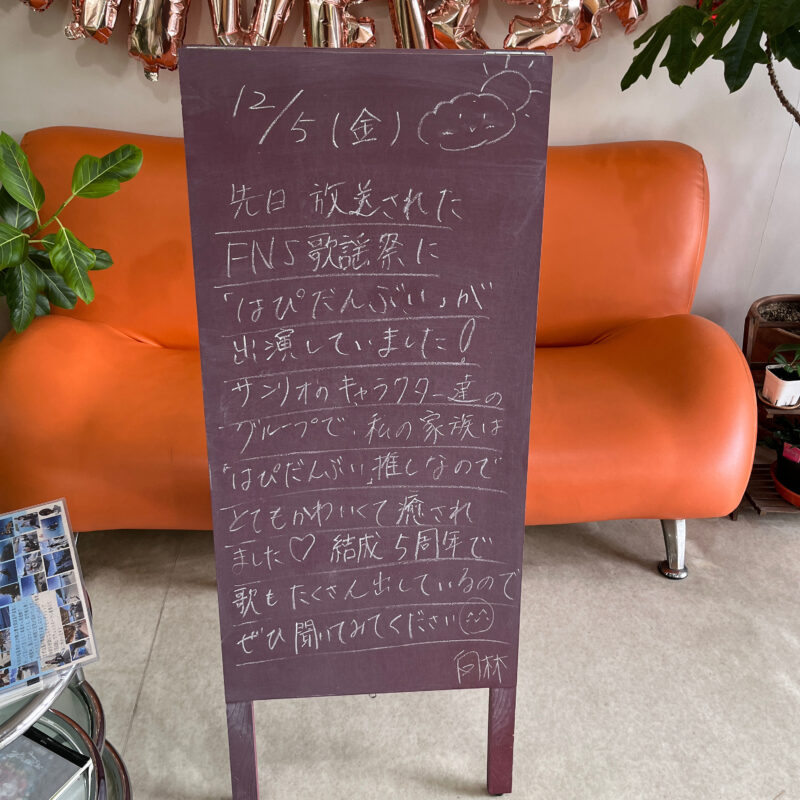 12/5(金)
先日 放送された
FNS歌謡祭に
「はぴだんぶい」が
出演していました!
サンリオのキャラクター達の
グループで、私の家族は
「はぴだんぶい」推しなので
とてもかわいくて癒され
ました♡ 結成5周年で
歌もたくさん出しているので
ぜひ聞いてみてください
向林